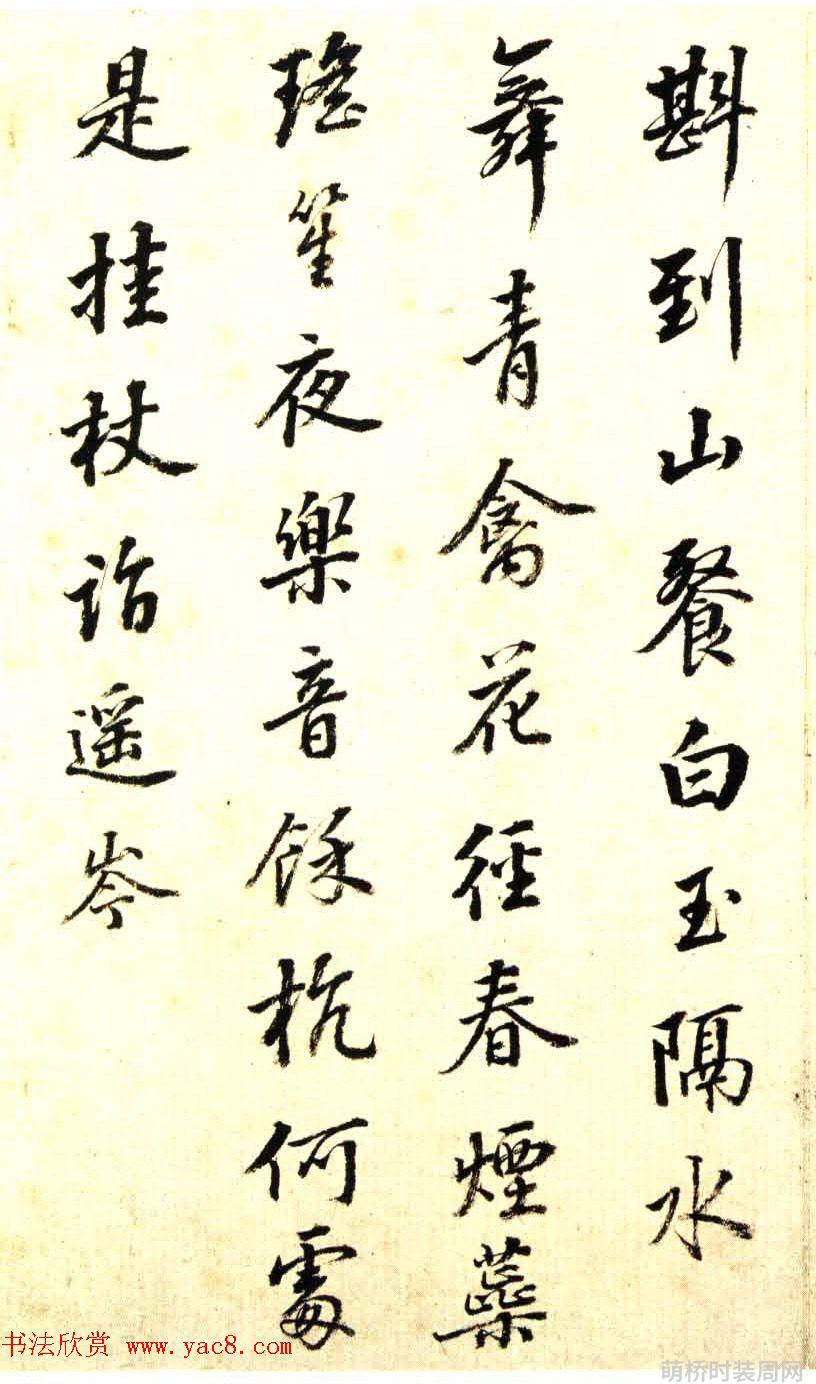 斟到山餐白玉隔水
舞青禽花徑春煙蘂
瑤笙夜樂音餘杭何處
是挂杖詣遥岑
书法欣赏 www.yac8.com
萌桥时装周网